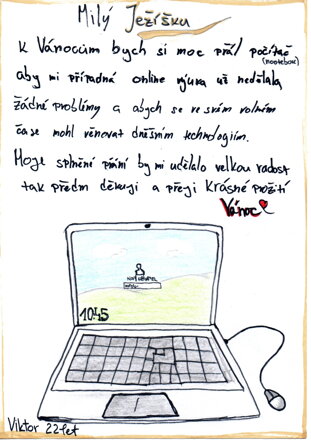 Milý Ježíšku
K Vánocům bych si moc přál počítač
(nootebook)
aby mi případná online výuka už nedělala
žádné problémy a abych se ve svém volném
čase mohl věnovat dnešním technologiím.
Moje splnění přání by mi udělalo velkou radost
tak předm děkuji a přeji krásné prožití
Vánoc
10:45
Viktor 22 let